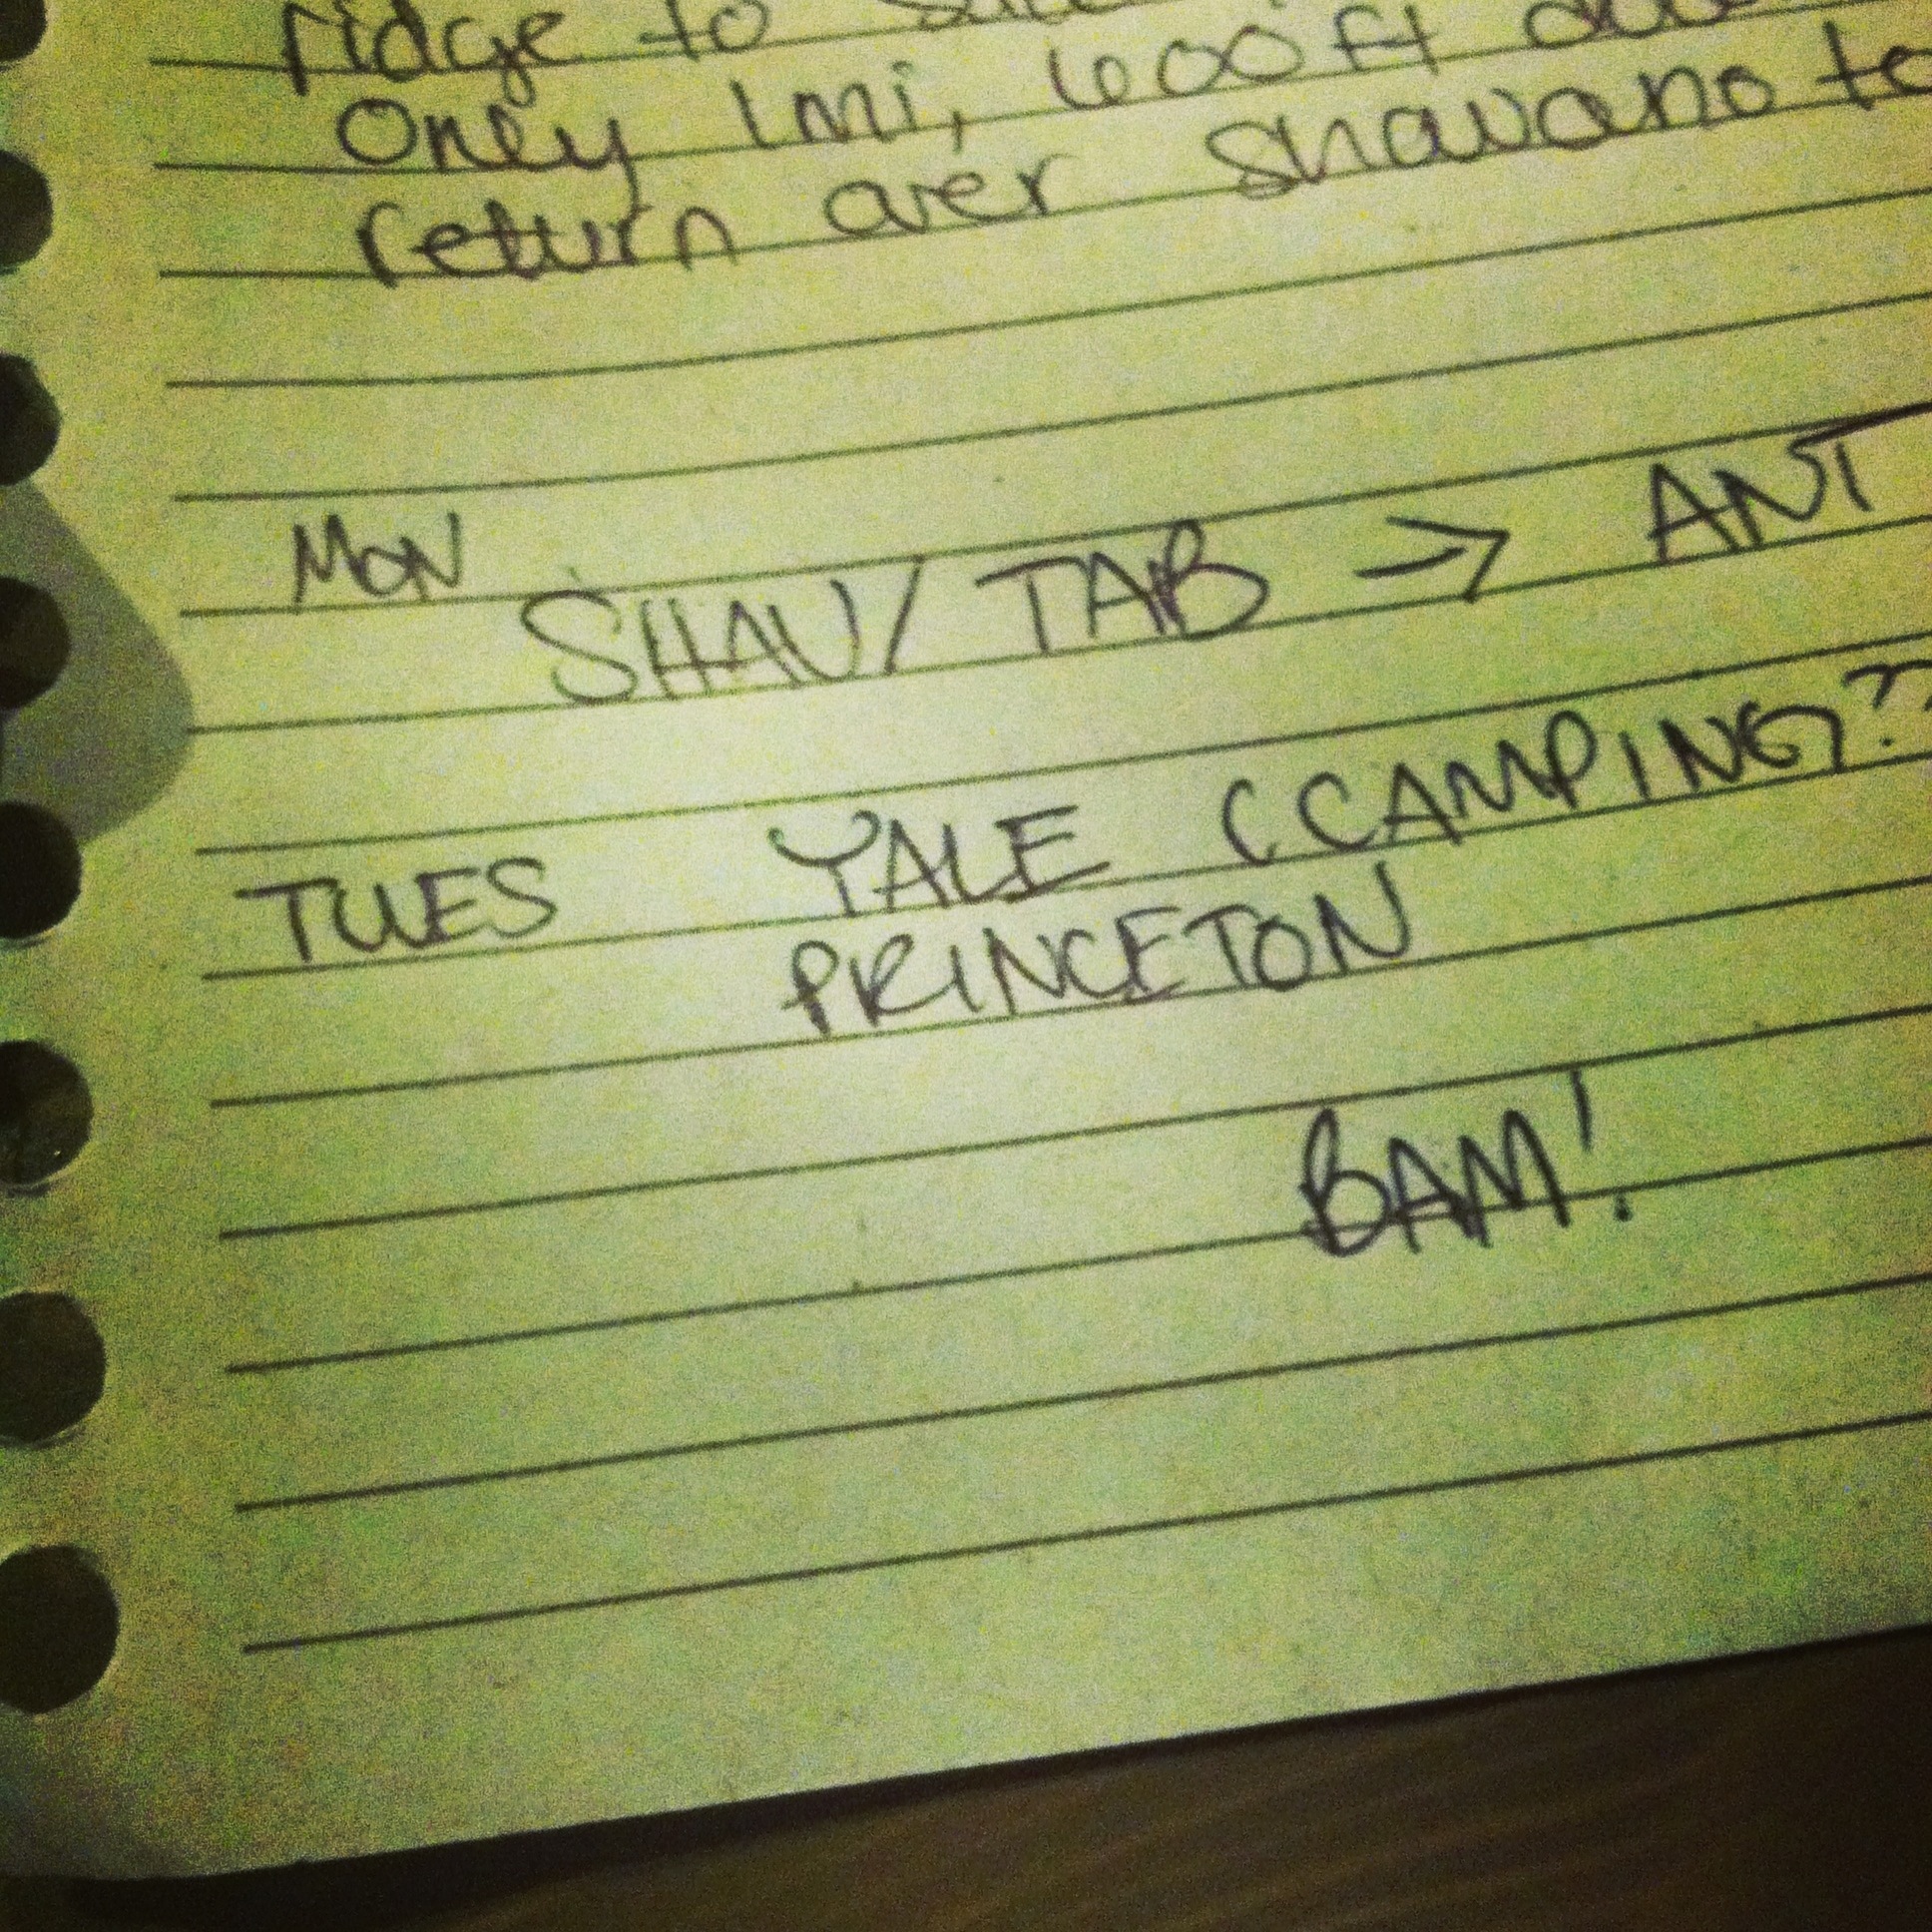 ridge to
Only 1mi, 600ft
return over Shavano to
MON
SHAV/ TAB → ANT
TUES YALE (CAMPING?
PRINCETON
BAM!